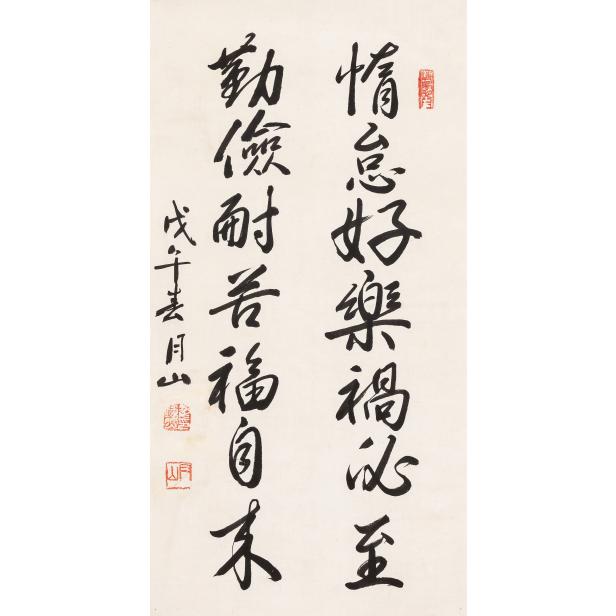 惰怠好樂禍必至
勤儉耐苦福自来
戊午春月山
月山